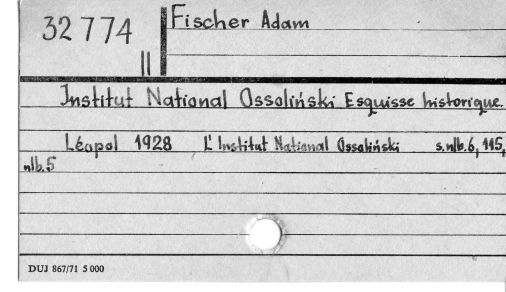 32774
II
Fischer Adam
Institut National Ossoliński Esquisse historique.
Léopol 1928 L'Institut National Ossoliński s.nlb.6, 115,
nlb.5
DUJ 867/71 5 000